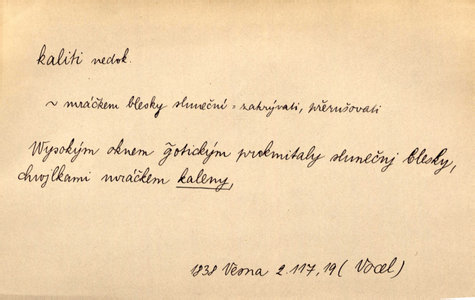 kaliti nedok.
~ mráčkem blesky sluneční = zakrývati, přerušovati
Wysokým oknem g̃otickým prokmitaly slunečnj blesky,
chwjlkami mráčkem kaleny,
1838 Vesna 2.117,19 (Vocel)